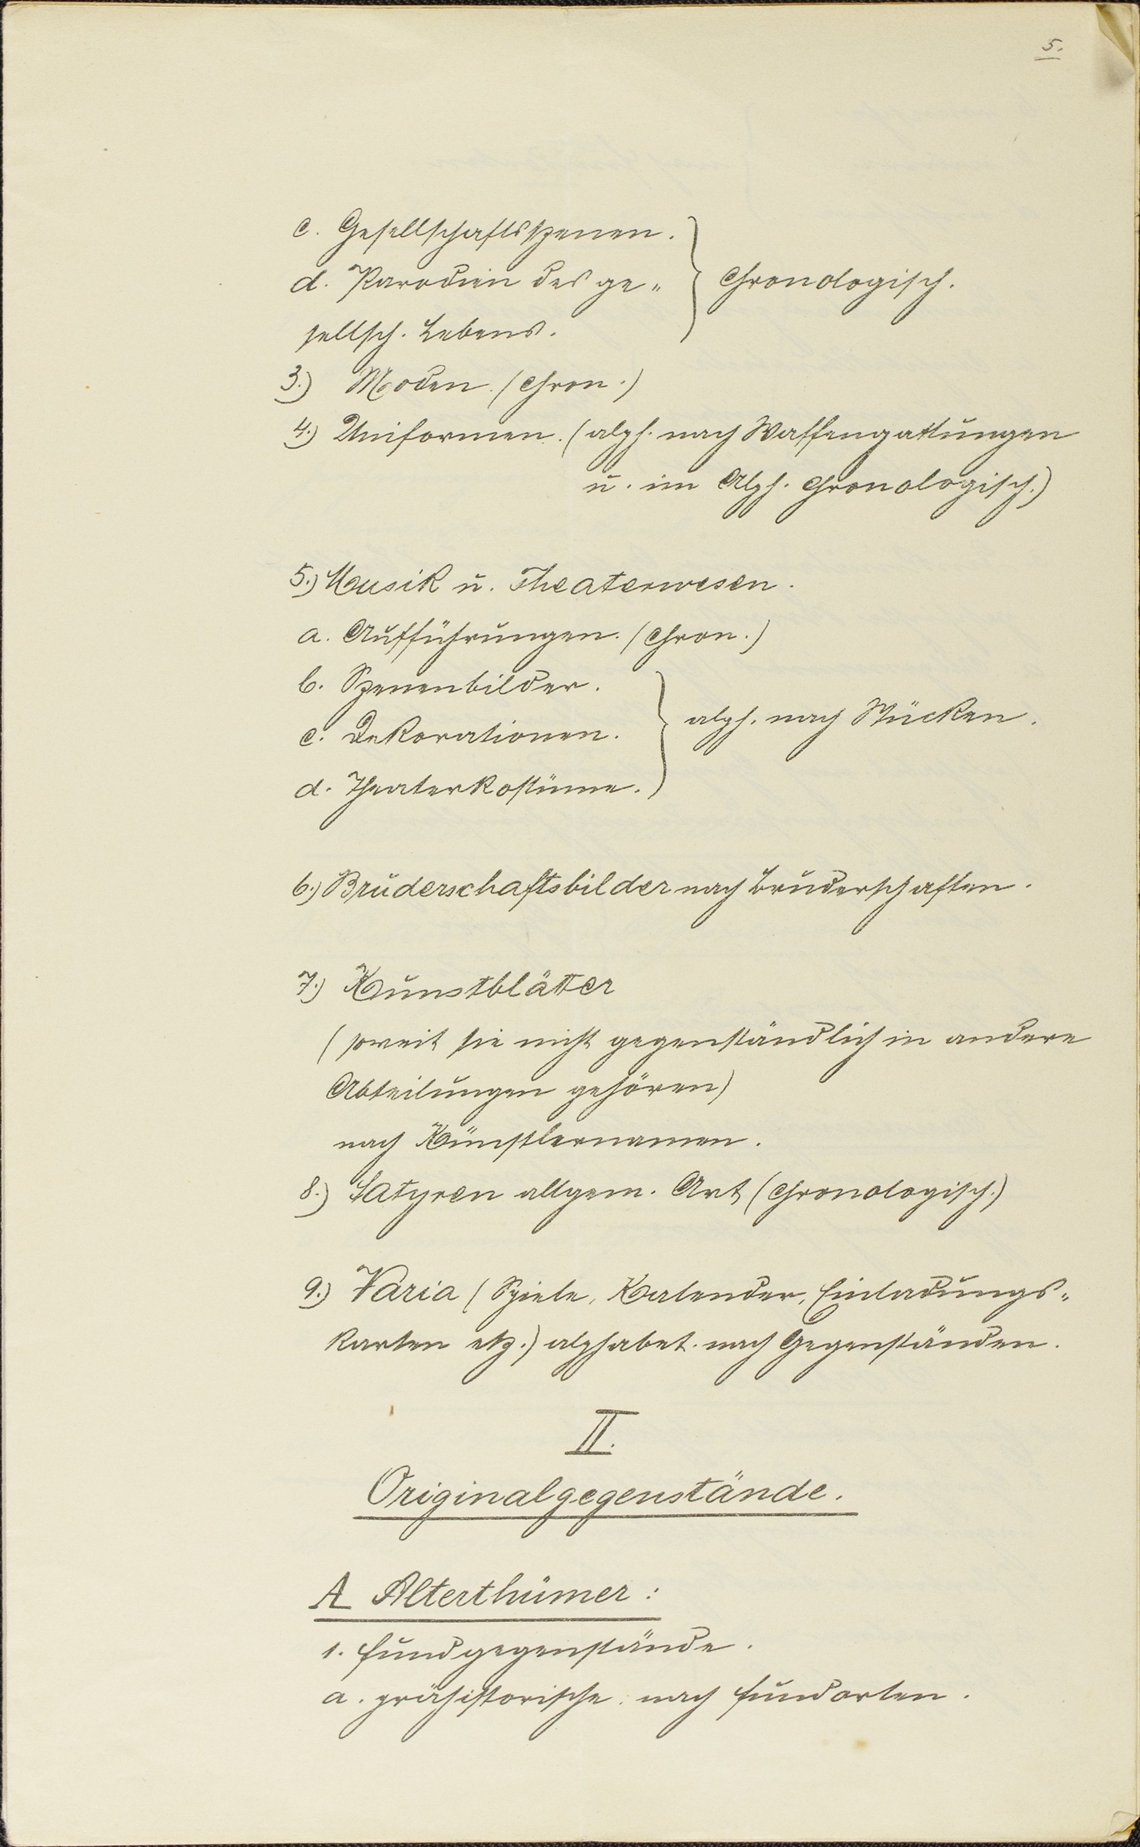 5.
c. Gesellschaftsszenen.
d. Parodien des ge„ } chronologisch.
sellsch. Lebens.
3.) Moden. (chron.)
4.) Uniformen. (alph. nach Waffengattungen
u. im Alph. chronologisch.)
5.) Musik u. Theaterwesen.
a. Aufführungen. (chron.)
b. Szenenbilder.
c. Dekorationen. } alph. nach Stücken.
d. Theaterkostüme.
6.) Bruderschaftsbilder nach Bruderschaften.
7.) Kunstblätter
(soweit sie nicht gegenständlich in andere
Abteilungen gehören)
nach Künstlernamen.
8.) Satyren allgem. Art (chronologisch.)
9.) Varia (Spiele, Kalender, Einladungs„
karten etz.) alphabet. nach Gegenständen.
II.
Originalgegenstände.
A Alterthümer:
1. Fundgegenstände.
a. prähistorische. nach Fundorten.